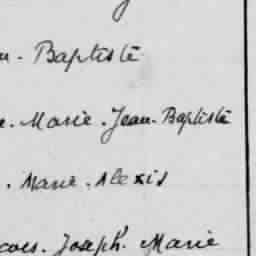 Baptiste
Marie. Jean. Baptiste
. Marie. Alexis
Joseph. Marie